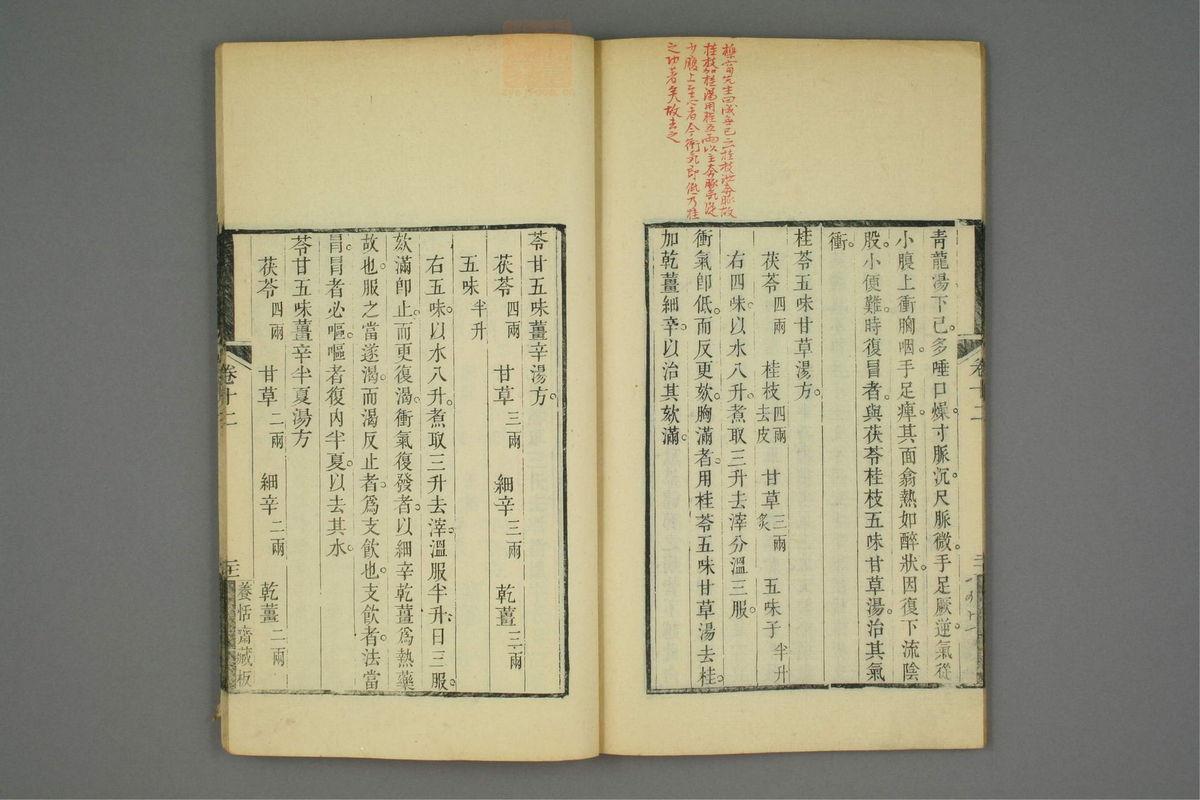 櫟窗先生曰成無已云桂枝泄奔豚故
桂枝加桂湯用桂五兩以主奔豚氣從
少腹上至心者今衝氣即低乃桂
之功著矣故去之
青龍湯下已。多唾口燥。寸脈沉。尺脈微。手足厥逆。氣從
小腹上衝胸咽。手足痺。其面翕熱如醉狀。因復下流陰
股。小便難。時復冒者。與茯苓桂枝五味甘草湯。治其氣
衝。
桂苓五味甘草湯方。
茯苓四兩 桂枝四兩去皮 甘草三兩炙 五味子半升
右四味。以水八升。煮取三升去滓分溫三服。
衝氣卽低。而反更欬。胸滿者。用桂苓五味甘草湯去桂。
加乾薑細辛。以治其欬滿。
苓甘五味薑辛湯方。
茯苓四兩 甘草三兩 細辛三兩 乾薑三兩
五味半升
右五味。以水八升。煮取三升去滓。溫服半升。日三服。
欬滿卽止。而更復渴。衝氣復發者。以細辛乾薑爲熱藥
故也。服之當遂渴。而渴反止者。爲支飲也。支飲者。法當
冒。冒者必嘔。嘔者復內半夏。以去其水。
苓甘五味薑辛半夏湯方
茯苓四兩 甘草二兩 細辛二兩 乾薑二兩
卷十二
養恬齋藏板